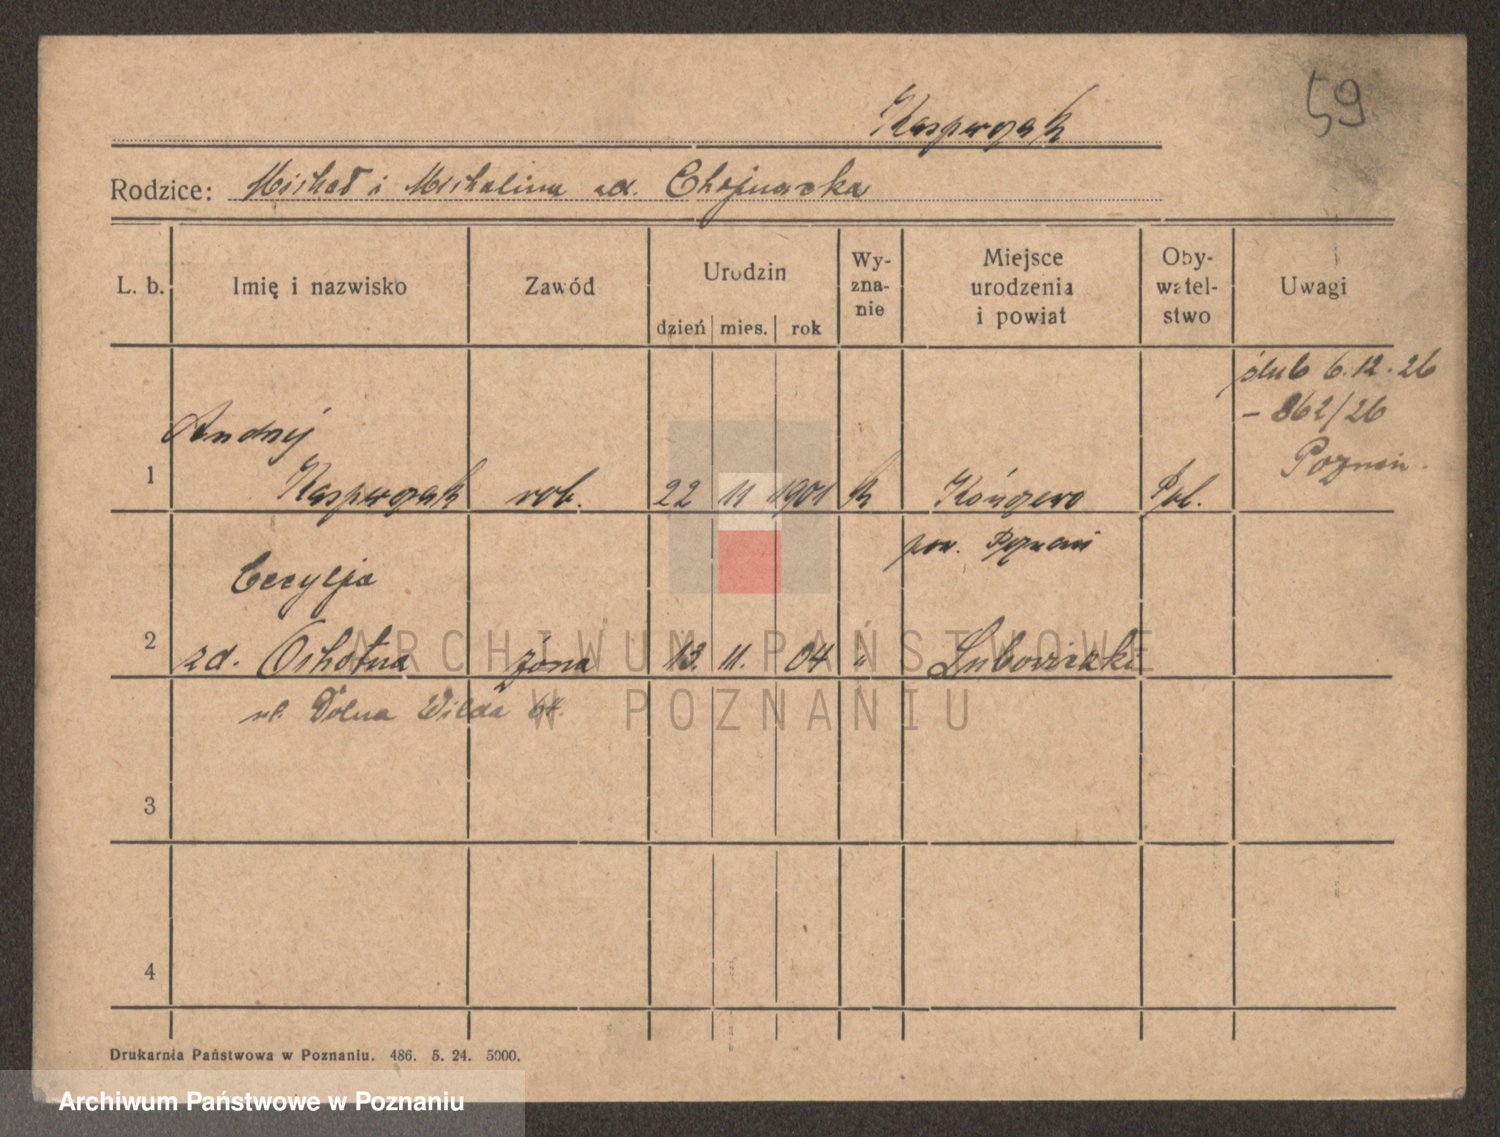 59
Kasperczak
Rodzice: Michał i Michalina zd. Chojnacka
L. b. Imię i nazwisko Zawód Urodzin Wy-zna-nie Miejsce urodzenia i powiat Oby-watel-stwo Uwagi
dzień mies. rok
ślub 6.12.26
– 862/26
Poznań.
Andrzej
1 Kasperczak rob. 22 11 1901 k Pol.
pow. Poznań
Cecylja
2 zd. Ochotna żona 13. 11. 04 "
ul. Dolna Wilda 64.
3
4
Drukarnia Państwowa w Poznaniu. 486. 5. 24. 5000.
ARCHIWUM PAŃSTWOWE
W POZNANIU
Archiwum Państwowe w Poznaniu